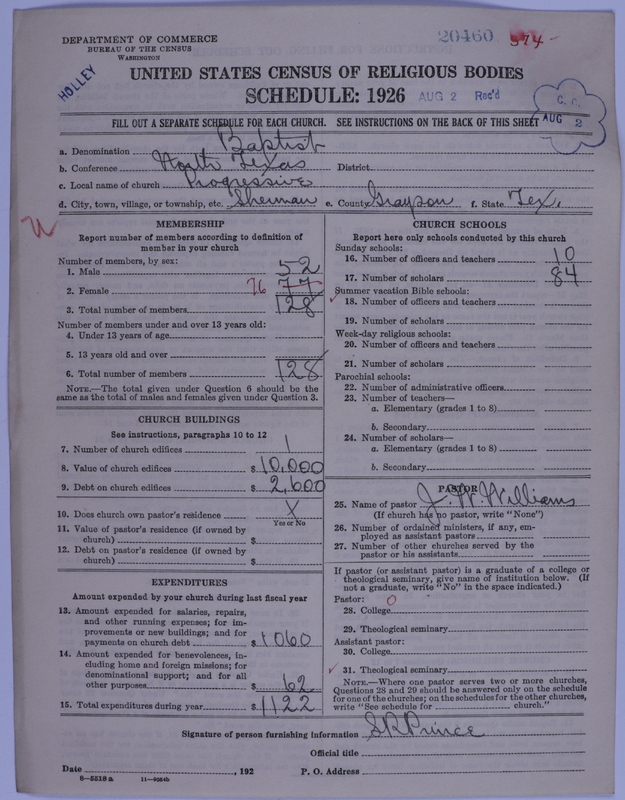 DEPARTMENT OF COMMERCE
BUREAU OF THE CENSUS
WASHINGTON
20460 574-
HOLLEY
UNITED STATES CENSUS OF RELIGIOUS BODIES
SCHEDULE: 1926
AUG 2 Rec'd
C. C.
AUG 2
FILL OUT A SEPARATE SCHEDULE FOR EACH CHURCH. SEE INSTRUCTIONS ON THE BACK OF THIS SHEET
a. Denomination Baptist
b. Conference North Texas District
c. Local name of church Progressive
d. City, town, village, or township, etc. Sherman e. County Grayson f. State Tex.
MEMBERSHIP
Report number of members according to definition of
member in your church
Number of members, by sex:
1. Male 52
2. Female 76 77
3. Total number of members 128
Number of members under and over 13 years old:
4. Under 13 years of age
5. 13 years old and over
6. Total number of members 128
NOTE.—The total given under Question 6 should be the
same as the total of males and females given under Question 3.
CHURCH BUILDINGS
See instructions, paragraphs 10 to 12
7. Number of church edifices 1
8. Value of church edifices $ 10,000
9. Debt on church edifices $ 2,600
10. Does church own pastor's residence X
Yes or No
11. Value of pastor's residence (if owned by
church) $
12. Debt on pastor's residence (if owned by
church) $
EXPENDITURES
Amount expended by your church during last fiscal year
13. Amount expended for salaries, repairs,
and other running expenses; for im-
provements or new buildings; and for
payments on church debt $ 1060
14. Amount expended for benevolences, in-
cluding home and foreign missions; for
denominational support; and for all
other purposes $ 62
15. Total expenditures during year $ 1122
CHURCH SCHOOLS
Report here only schools conducted by this church
Sunday schools:
16. Number of officers and teachers 10
17. Number of scholars 84
Summer vacation Bible schools:
18. Number of officers and teachers
19. Number of scholars
Week-day religious schools:
20. Number of officers and teachers
21. Number of scholars
Parochial schools:
22. Number of administrative officers
23. Number of teachers—
a. Elementary (grades 1 to 8)
b. Secondary
24. Number of scholars—
a. Elementary (grades 1 to 8)
b. Secondary
PASTOR
25. Name of pastor J. W. Williams
(If church has no pastor, write "None")
26. Number of ordained ministers, if any, em-
ployed as assistant pastors
27. Number of other churches served by the
pastor or his assistants
If pastor (or assistant pastor) is a graduate of a college or
theological seminary, give name of institution below. (If
not a graduate, write "No" in the space indicated.)
Pastor: 0
28. College
29. Theological seminary
Assistant pastor:
30. College
31. Theological seminary
NOTE.—Where one pastor serves two or more churches,
Questions 28 and 29 should be answered only on the schedule
for one of the churches; on the schedules for the other churches,
write "See schedule for church."
Signature of person furnishing information S R Prince
Official title
Date , 192 P. O. Address
8—5518a 11—9064b